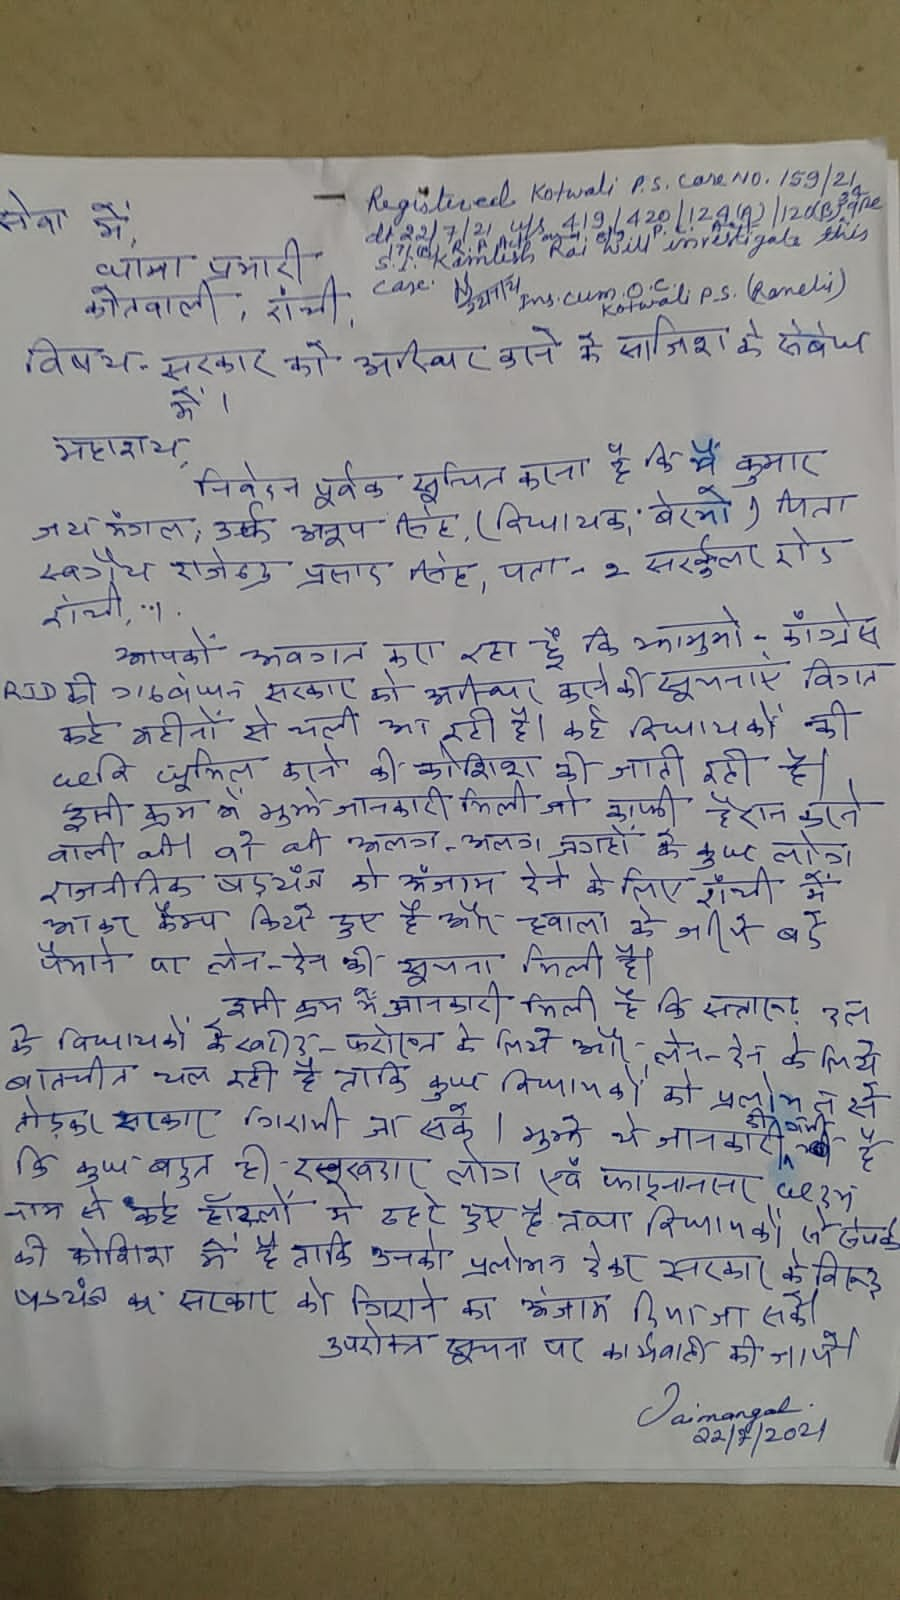 सेवा में,
थाना प्रभारी
कोतवाली, राँची,
Registered Kotwali P.S. Case No. 159/21
dt 22/7/21 u/s 419/420/124(A)/120(B) 34 IPC
S.I. Kamlesh Rai will investigate this
case.
Ins. cum. O.C
Kotwali P.S. (Ranchi)
विषय - सरकार को अस्थिर करने के साजिश के संबंध
में।
महाशय,
निवेदन पूर्वक सूचित करना है कि मैं कुमार
जय मंगल, उर्फ अनूप सिंह, (विधायक, बेरमो) पिता
स्वर्गीय राजेन्द्र प्रसाद सिंह, पता - 2 सरर्कुलर रोड
राँची,
आपको अवगत करा रहा हूँ कि झामुमो - काँग्रेस
RJD की गठबंधन सरकार को अस्थिर करने की सूचनाएं विगत
कई महीनों से चली आ रही है। कई विधायकों की
छवि धूमिल करने की कोशिश की जाती रही है।
इसी क्रम में मुझे जानकारी मिली जो काफी हैरान करने
वाली थी। वो थी अलग-अलग जगहों के कुछ लोग
राजनीतिक षड्यंत्र को अंजाम देने के लिए राँची में
आकर कैम्प किये हुए है और हवाला के जरिये बड़े
पैमाने पर लेन-देन की सूचना मिली है।
इसी क्रम में जानकारी मिली है कि सत्तारूढ़ दल
के विधायकों के खरीद-फरोख्त के लिये और लेन-देन के लिये
बातचीत चल रही है ताकि कुछ विधायकों को प्रलोभन से
तोड़कर सरकार गिरायी जा सके। मुझे ये जानकारी दी गयी है
कि कुछ बहुत ही रसूखदार लोग एवं फाइनानसर छदम
नाम से कई होटलों में ठहरे हुए है तथा विधायकों से संपर्क
की कोशिश में है ताकि उनको प्रलोभन देकर सरकार के विरूद्ध
षडयंत्र कर सरकार को गिराने का अंजाम दिया जा सके।
उपरोक्त सूचना पर कार्यवाही की जाये।
Jaimangal.
22/7/2021